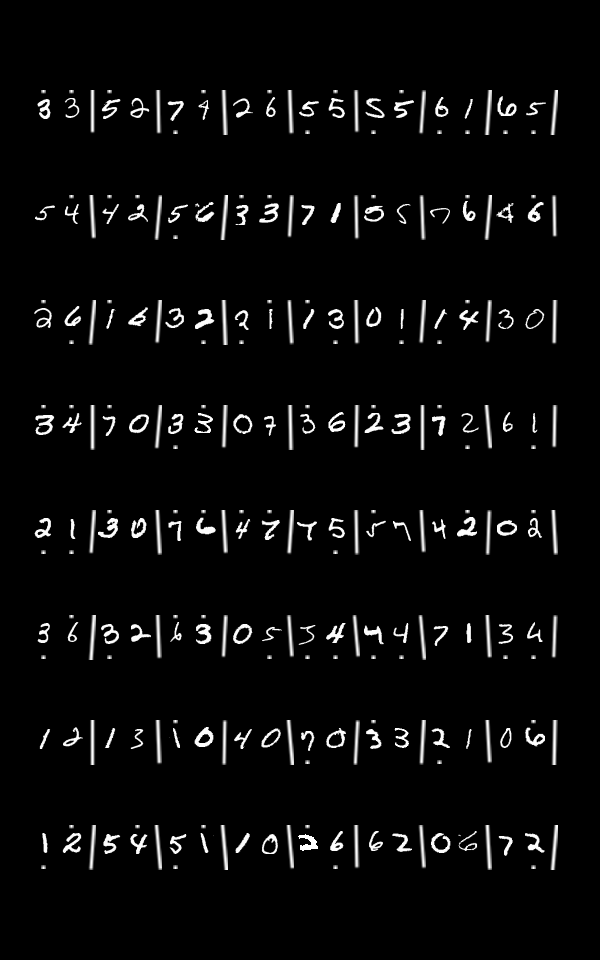 3 3 | 5 2 | 7 4 | 2 6 | 5 5 | 5 5 | 6 1 | 6 5 |
5 4 | 4 2 | 5 6 | 3 3 | 7 1 | 5 5 | 7 6 | 4 6 |
2 6 | 1 6 | 3 2 | 2 1 | 1 3 | 0 1 | 1 4 | 3 0 |
3 4 | 7 0 | 3 3 | 0 7 | 3 6 | 2 3 | 7 2 | 6 1 |
2 1 | 3 0 | 7 6 | 4 7 | 7 5 | 5 7 | 4 2 | 0 2 |
3 6 | 3 2 | 6 3 | 0 5 | 5 4 | 4 4 | 7 1 | 3 4 |
1 2 | 1 3 | 1 0 | 4 0 | 7 0 | 3 3 | 2 1 | 0 6 |
1 2 | 5 4 | 5 1 | 1 0 | 2 6 | 6 2 | 0 6 | 7 2 |